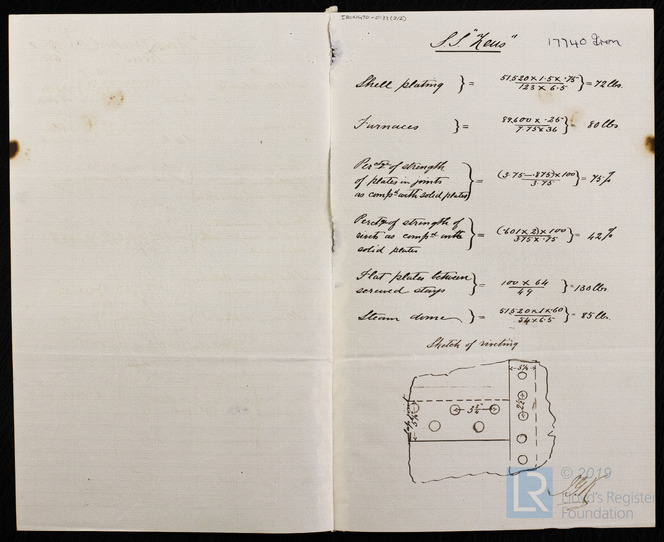 S.S. "Zeus" 17740 Iron
Shell plating } = 51,520 x 1.5 x .75 / 123 x 6.5 } = 72 lbs.
Furnaces } = 89,600 x .25 / 7.75 x 36 } = 80 lbs
of strength
of plates in joints
as comp'd with solid plates } = (3.75 - .875) x 100 / 3.75 } = 75 %
of strength of
rivets as comp'd with
solid plates } = (.601 x 2) x 100 / 3.75 x .75 } = 42 %
Flat plates between
screwed stays } = 100 x 64 / 49 } = 130 lbs
Steam dome } = 51,520 x 1 x .60 / 54 x 6.5 } = 85 lbs.
Sketch of riveting
© 2019
LR
Lloyd's Register
Foundation